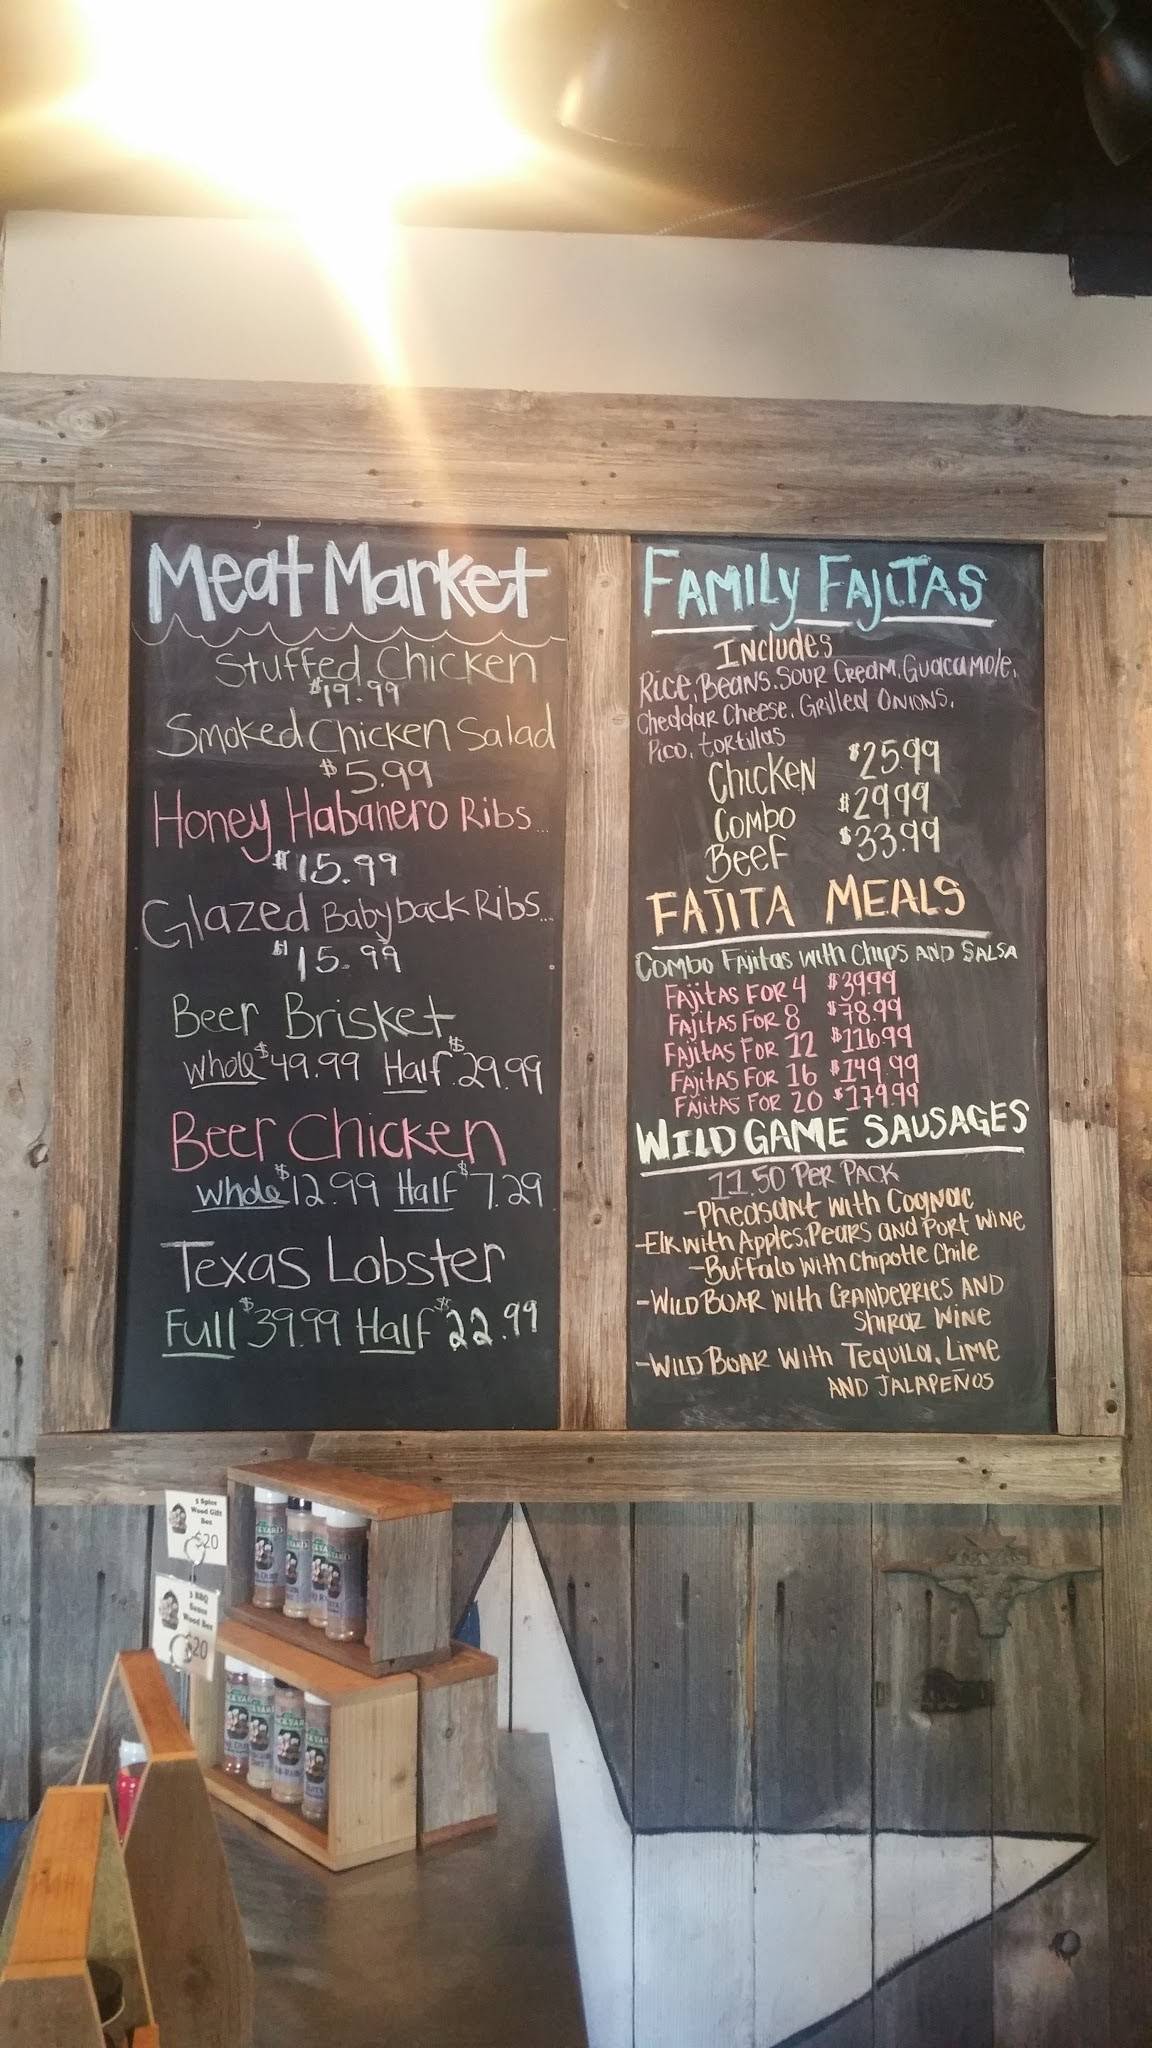 Meat Market
Stuffed Chicken
$19.99
Smoked Chicken Salad
$5.99
Honey Habanero Ribs...
$15.99
Glazed Babyback Ribs...
$15.99
Beer Brisket
Whole $49.99 Half $29.99
Beer Chicken
Whole $12.99 Half $7.29
Texas Lobster
Full $39.99 Half $22.99
FAMILY FAJITAS
Includes
Rice, Beans, Sour Cream, Guacamole,
Cheddar Cheese, Grilled Onions,
Pico, tortillas
Chicken $25.99
Combo $29.99
Beef $33.99
FAJITA MEALS
Combo Fajitas with Chips AND SALSA
Fajitas FOR 4 $39.99
Fajitas FOR 8 $78.99
Fajitas FOR 12 $116.99
Fajitas FOR 16 $149.99
Fajitas FOR 20 $179.99
WILD GAME SAUSAGES
11.50 PER PACK
-Pheasant with Cognac
-Elk with Apples, Pears and Port Wine
-Buffalo with Chipotle Chile
-WILD BOAR with CRANBERRIES AND
SHIRAZ WINE
-WILD BOAR With Tequila, Lime
AND JALAPEÑOS
5 Spice
Wood Gift
Box
$20
3 BBQ
Sauce
Wood Box
$20